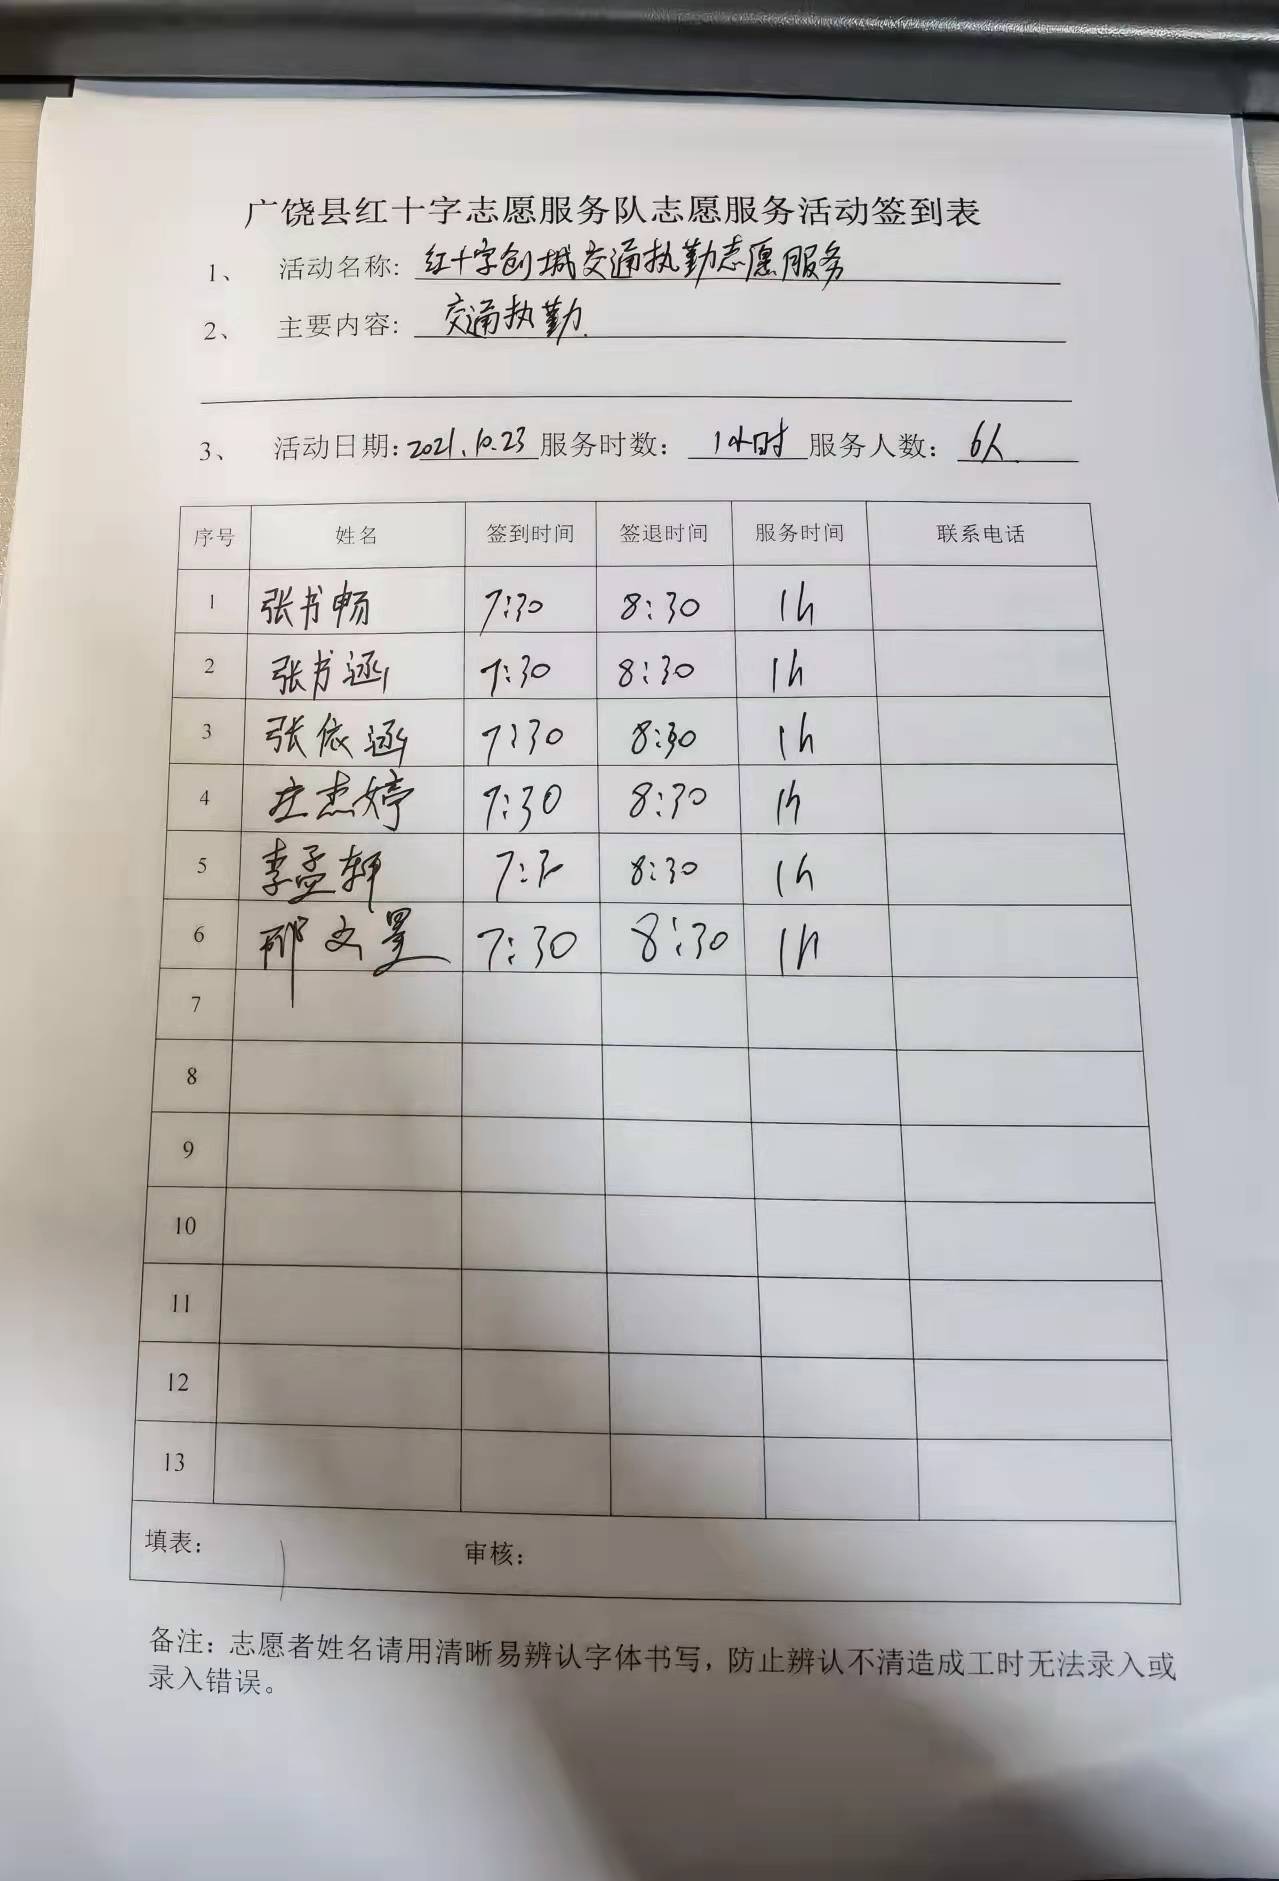 广饶县红十字志愿服务队志愿服务活动签到表
1、 活动名称: 红十字创城交通执勤志愿服务
2、 主要内容: 交通执勤.
3、 活动日期: 2021.10.23 服务时数: 1小时 服务人数: 6人.
序号 姓名 签到时间 签退时间 服务时间 联系电话
1 张书畅 7:30 8:30 1h
2 张书涵 7:30 8:30 1h
3 张依涵 7:30 8:30 1h
4 庄杰婷 7:30 8:30 1h
5 李孟轩 7:30 8:30 1h
6 邢文星 7:30 8:30 1h
7
8
9
10
11
12
13
填表: 审核:
备注: 志愿者姓名请用清晰易辨认字体书写，防止辨认不清造成工时无法录入或
录入错误。